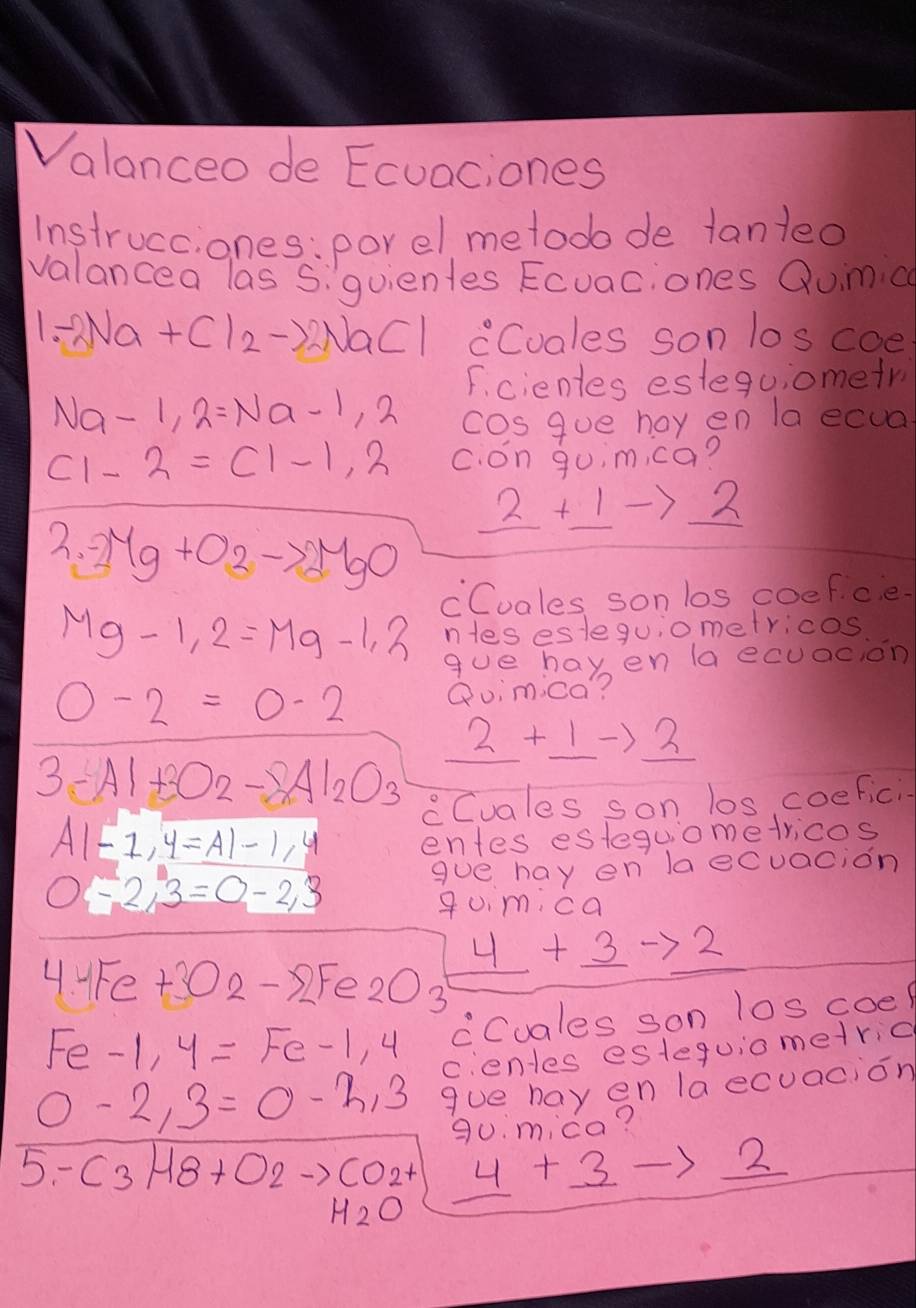 Valanceo de Ecuaciones
Instrucciones: por el metodo de tanteo
valancea las Siguientes Ecuaciones Quimica
1.-2Na + Cl2 -> 2NaCl
Na - 1, 2 = Na - 1, 2
Cl - 2 = Cl - 1, 2
¿Cuales son los coe-
ficientes estequiometri
cos que hay en la ecua-
ción quimica?
2 + 1 -> 2
2.-2Mg + O2 -> 2MgO
Mg - 1, 2 = Mg - 1, 2
O - 2 = O - 2
¿Cuales son los coeficie-
ntes estequiometricos
que hay en la ecuación
Quimica?
2 + 1 -> 2
3.-4Al + 3O2 -> 2Al2O3
Al - 1, 4 = Al - 1, 4
O - 2, 3 = O - 2, 3
¿Cuales son los coefici-
entes estequiometricos
que hay en la ecuación
quimica
4 + 3 -> 2
4.-4Fe + 3O2 - 2Fe2O3
Fe - 1, 4 = Fe - 1, 4
O - 2, 3 = O - 2, 3
¿Cuales son los coef
cientes estequiometric
que hay en la ecuación
quimica?
4 + 3 -> 2
5.- C3H8 + O2 -> CO2 +
H2O